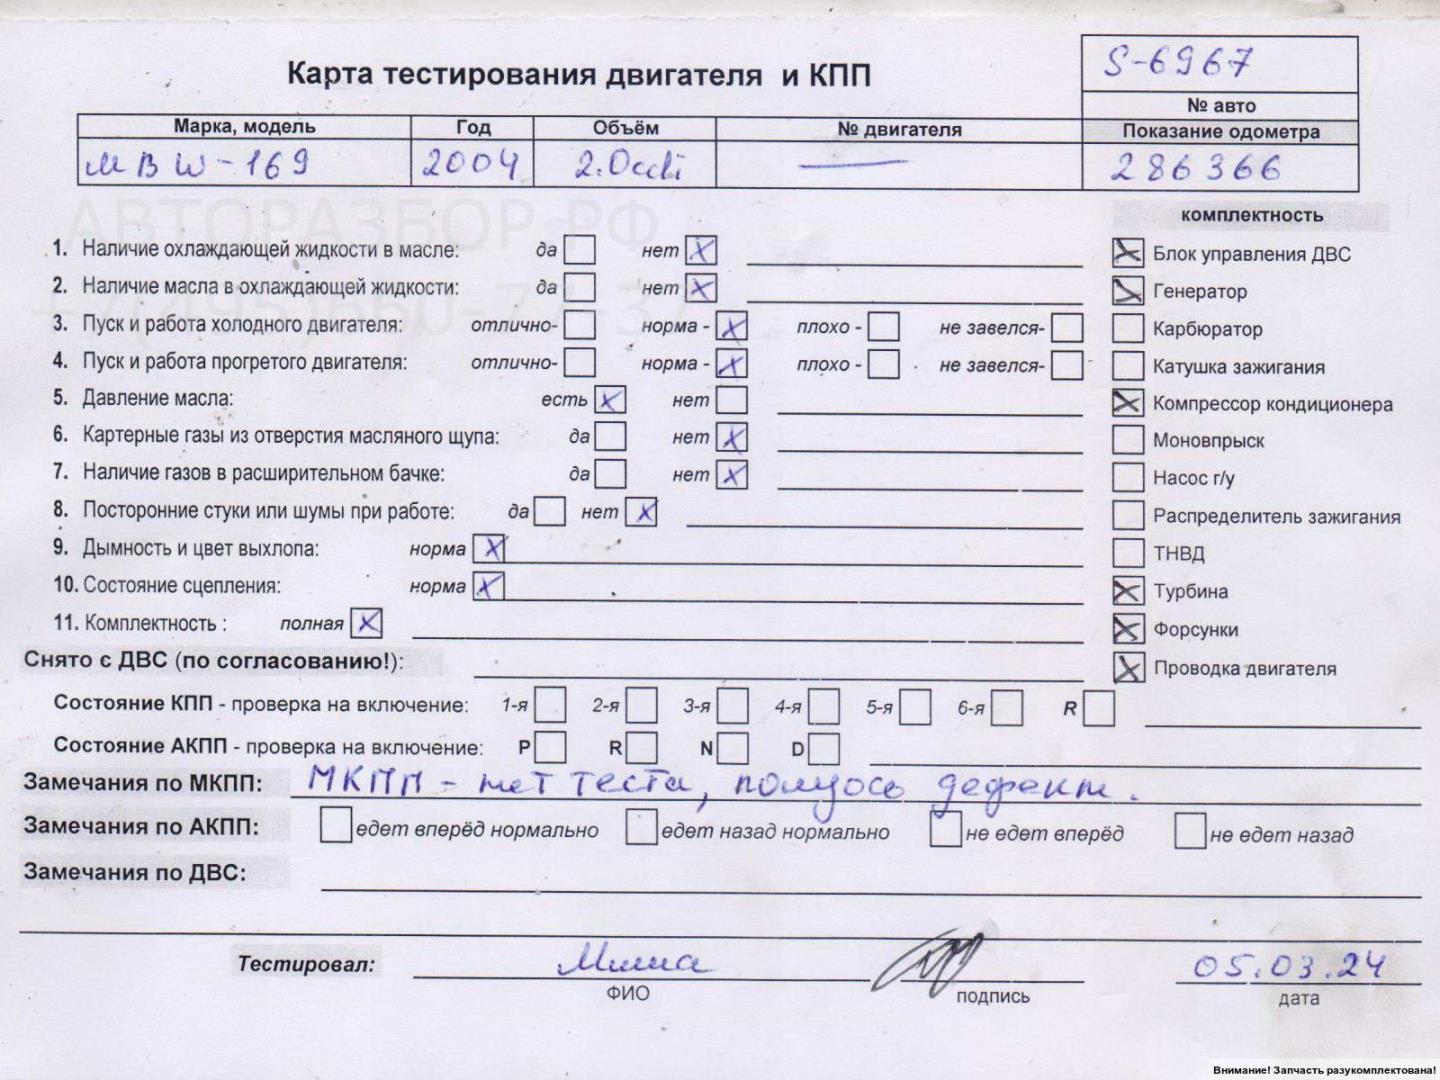 S-6967
Карта тестирования двигателя и КПП
№ авто
Марка, модель Год Объём № двигателя Показание одометра
MB W-169 2004 2.0cdi — 286366
АВТОРАЗБОР.РФ
комплектность
1. Наличие охлаждающей жидкости в масле: да нет X
X Блок управления ДВС
2. Наличие масла в охлаждающей жидкости: да нет X
X Генератор
3. Пуск и работа холодного двигателя: отлично- норма - X плохо - не завелся-
Карбюратор
4. Пуск и работа прогретого двигателя: отлично- норма - X плохо - не завелся-
Катушка зажигания
5. Давление масла: есть X нет
X Компрессор кондиционера
6. Картерные газы из отверстия масляного щупа: да нет X
Моновпрыск
7. Наличие газов в расширительном бачке: да нет X
Насос г/у
8. Посторонние стуки или шумы при работе: да нет X
Распределитель зажигания
9. Дымность и цвет выхлопа: норма X
ТНВД
10. Состояние сцепления: норма X
X Турбина
11. Комплектность : полная X
X Форсунки
Снято с ДВС (по согласованию!):
X Проводка двигателя
Состояние КПП - проверка на включение: 1-я 2-я 3-я 4-я 5-я 6-я R
Состояние АКПП - проверка на включение: P R N D
Замечания по МКПП: МКПП - нет теста, полуось дефект.
Замечания по АКПП: едет вперёд нормально едет назад нормально не едет вперёд не едет назад
Замечания по ДВС:
Тестировал: Миша 05.03.24
ФИО подпись дата
Внимание! Запчасть разукомплектована!